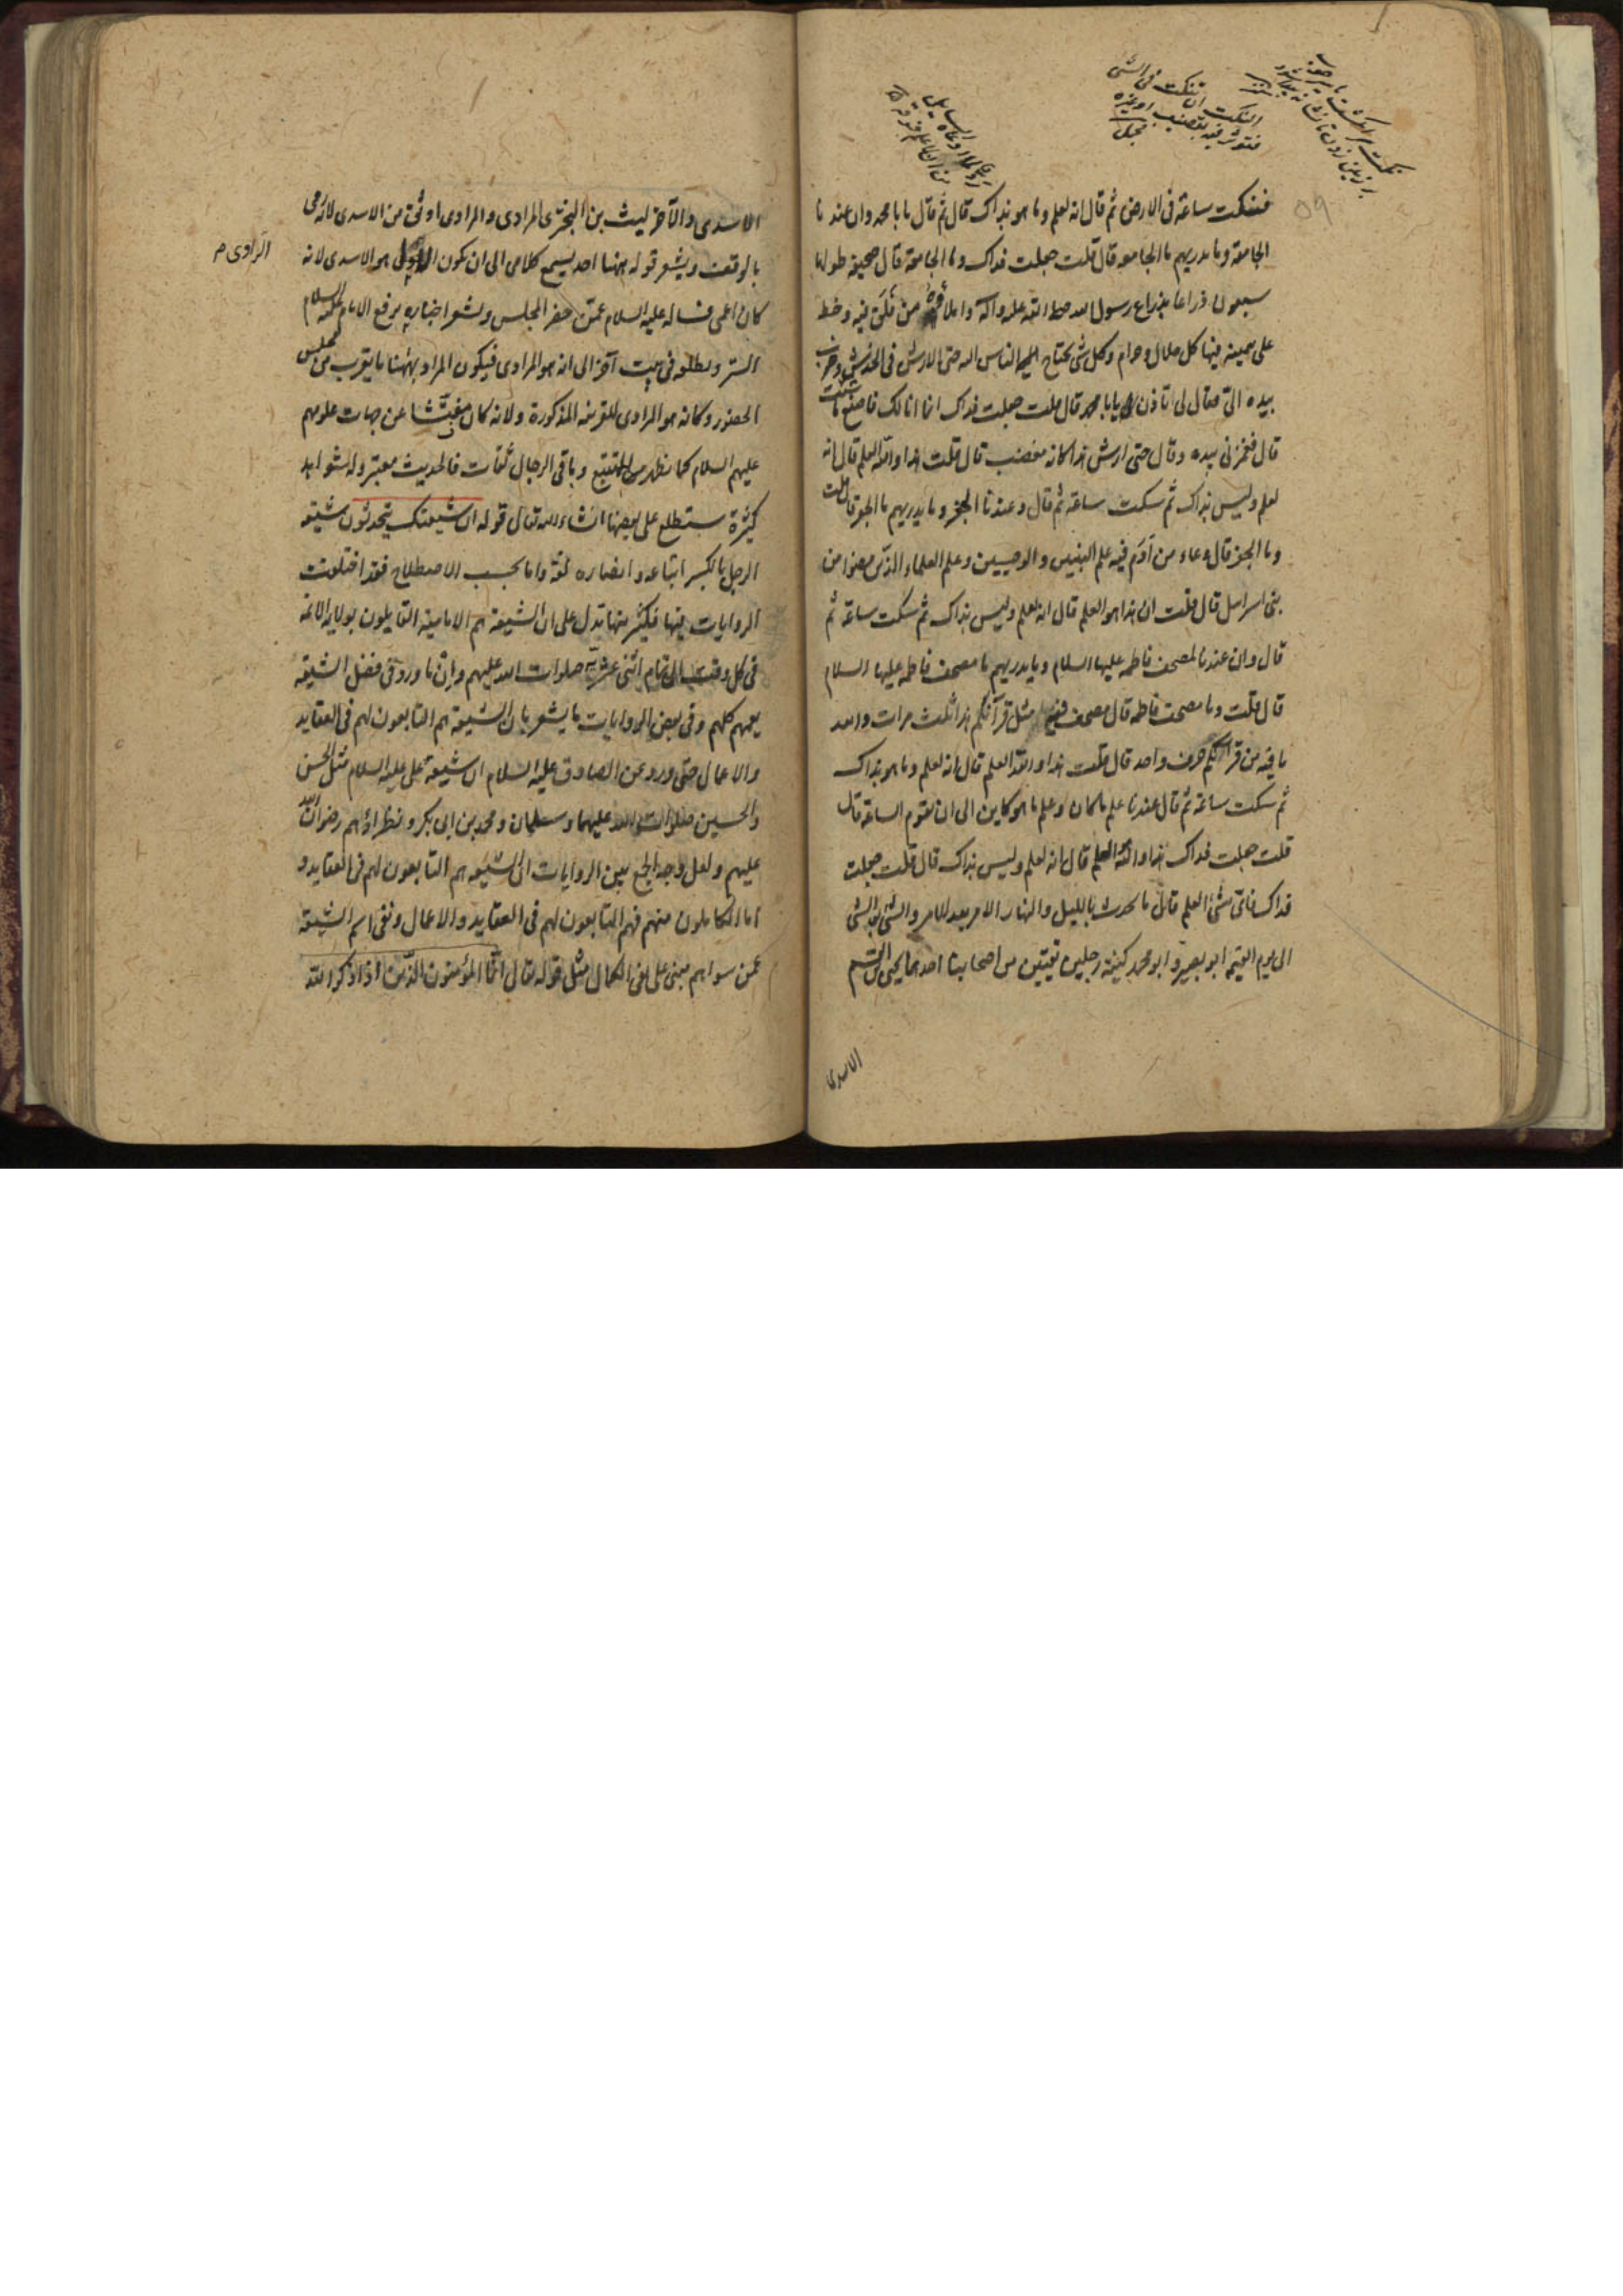 فنكت ساعة فى الارض ثم قال انه لعلم وما هو بذاك قال ثم قال يابا محمد وان عندنا
الجامعة وما يدريهم ما الجامعة قال قلت جعلت فداك وما الجامعة قال صحيفة طولها
سبعون ذراعا بذراع رسول الله صلى الله عليه وآله واملائه من فلق فيه وخط
على بيمينه فيها كل حلال وحرام وكل شئ يحتاج اليه الناس حتى الارش فى الخدش وضرب
بيده الىّ فقال لى اتاذن يابا محمد قال قلت جعلت فداك انما انا لك فاصنع ما شئت
قال فغمزنى بيده وقال حتى ارش هذا كانه مغضب قال قلت هذا والله العلم قال انه
لعلم وليس بذاك ثم سكت ساعة ثم قال وعندنا الجفر وما يدريهم ما الجفر قال قلت
وما الجفر قال وعاء من آدم فيه علم النبيين والوصيين وعلم العلماء الذين مضوا من
بنى اسرائيل قال قلت ان هذا هو العلم قال انه لعلم وليس بذاك ثم سكت ساعة ثم
قال وان عندنا لمصحف فاطمه عليها السلام وما يدريهم ما مصحف فاطمه عليها السلام
قال قلت وما مصحف فاطمه قال مصحف فيه مثل قرآنكم هذا ثلث مرات والله
ما فيه من قرانكم حرف واحد قال قلت هذا والله العلم قال انه لعلم وما هو بذاك
ثم سكت ساعة ثم قال عندنا علم ما كان وعلم ما هو كاين الى ان تقوم الساعة قال
قلت جعلت فداك هذا والله العلم قال انه لعلم وليس بذاك قال قلت جعلت
فداك فاىّ شئ العلم قال ما يحدث بالليل والنهار الامر بعد الامر والشئ بعد الشئ
الى يوم القيمة ابو بصير وابو محمد كنية رجلين ثقتين من اصحابنا احدهما يحيى بن القسم
الاسدى
الاسدى والآخر ليث بن البخترى المرادى والمرادى اوثق من الاسدى لانه رمى
بالوقف ويشعر قوله ههنا احد يسمع كلامى الى ان يكون الراوى هو الاسدى لانه
الراوى م
كان اعمى فساله عليه السلام عمن حضر المجلس ويشعر اخباره برفع الامام عليه السلام
الستر وتطلعه فى بيت آخر الى انه هو المرادى فيكون المراد بههنا ما يقرب من مجلس
الحضور وكانه هو المرادى للقرينة المذكورة ولانه كان مفتشا عن جهات علومهم
عليهم السلام كما يظهر للمتتبع وباقى الرجال ثقات فالحديث معتبر وله شواهد
كثيرة ستطلع على بعضها انشاء الله تعالى قوله ان شيعتك يتحدثون شيعة
الرجل بالكسر اتباعه وانصاره لغة واما بحسب الاصطلاح فقد اختلفت
الروايات فيها فكثير منها تدل على ان الشيعة هم الامامية القايلون بولاية الائمة
فى كل وقت الى تمام اثنى عشر صلوات الله عليهم وان ما ورد فى فضل الشيعة
يعمهم كلهم وفى بعض الروايات ما يشعر بان الشيعة هم التابعون لهم فى العقايد
والاعمال حتى ورد عن الصادق عليه السلام ان شيعة على عليه السلام مثل الحسن
والحسين صلوات الله عليهما وسلمان ومحمد بن ابى بكر ونظراؤهم رضوان الله
عليهم ولعل وجه الجمع بين الروايات ان الشيعة هم التابعون لهم فى العقايد و
اما الكاملون منهم فهم التابعون لهم فى العقايد والاعمال ونفى اسم الشيعة
عمن سواهم مبنى على نفى الكمال مثل قوله تعالى انما المؤمنون الذين اذا ذكر الله